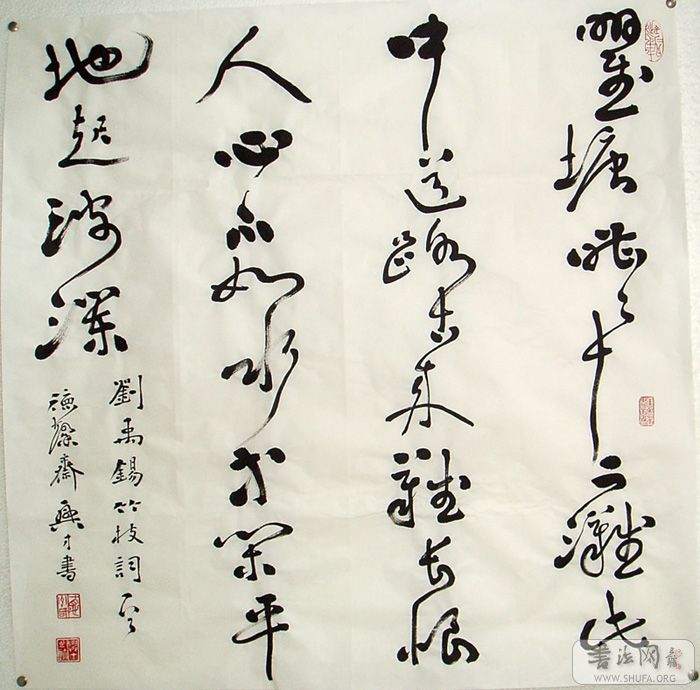 瞿塘嘈々十二灘此
中道路古來難長恨
人心不如水等閒平
地起波瀾
劉禹錫竹枝詞
齋興才書
书法网
WWW.SHUFA.ORG